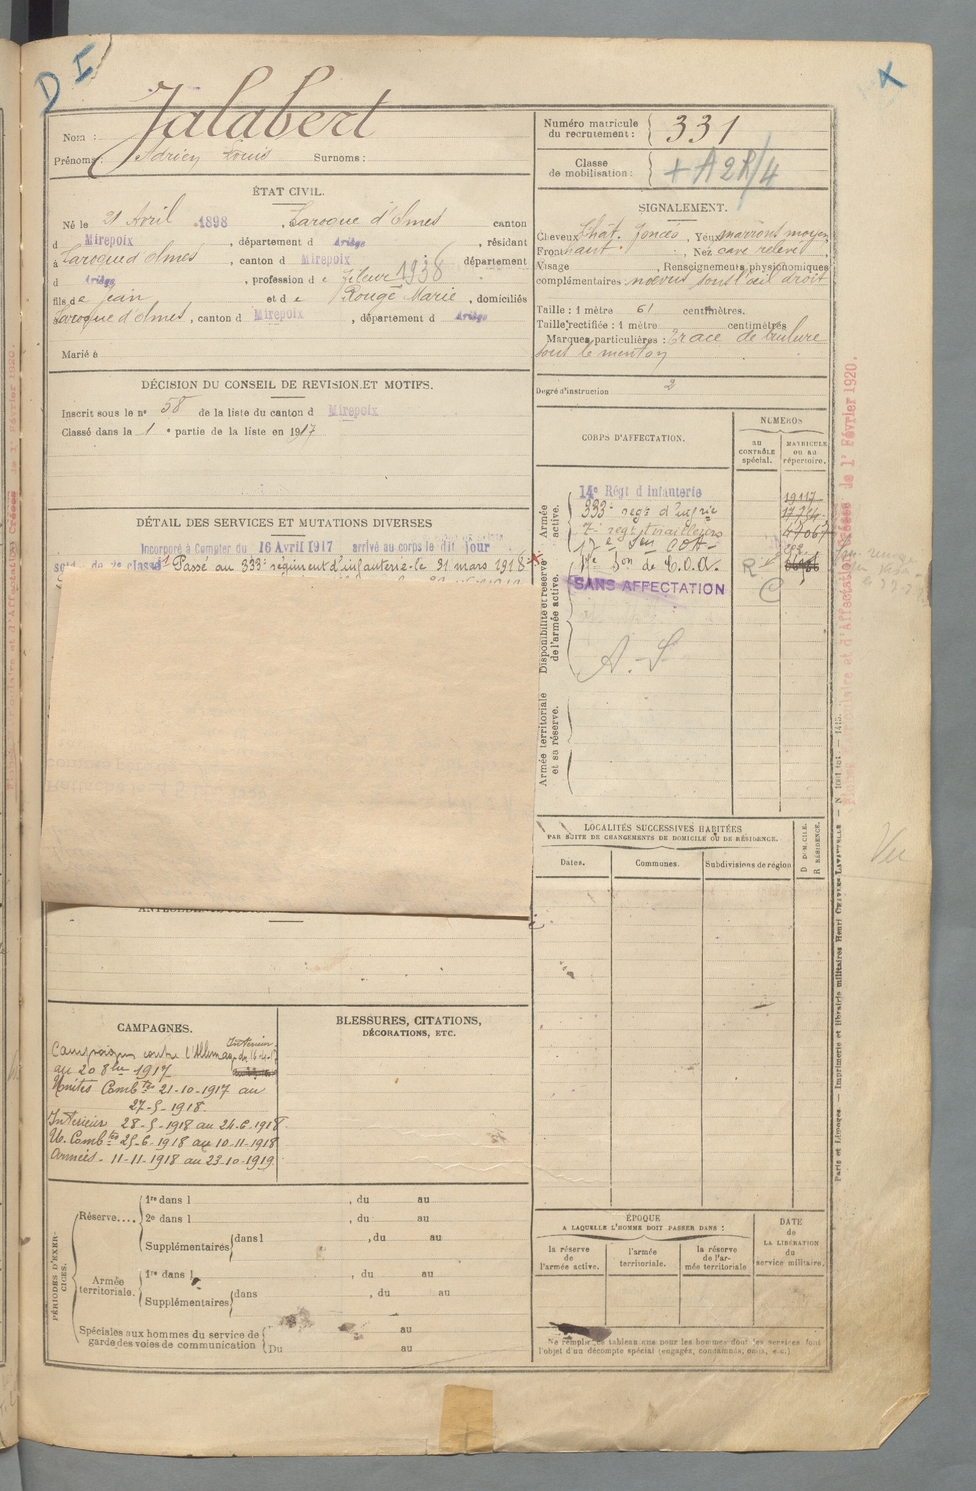 D I
X
Nom : Jalabert
Prénoms : Adrien Louis Surnoms :
Numéro matricule du recrutement : 331
Classe de mobilisation : + A 2R/4
ÉTAT CIVIL.
Né le 21 Avril 1898, Laroque d'Olmes canton
d Mirepoix, département d Ariège, résidant
à Laroque d'Olmes, canton d Mirepoix, département
d Ariège, profession de fileur 1938
fils de Jean et de Rougé Marie, domiciliés
Laroque d'Olmes, canton d Mirepoix, département d Ariège
Marié à
SIGNALEMENT.
Cheveux Chat. foncés, Yeux marrons moyen
Front haut, Nez cave relevé,
Visage , Renseignements physionomiques
complémentaires noevus sous l'œil droit
Taille : 1 mètre 61 centimètres.
Taille rectifiée : 1 mètre centimètres
Marques particulières : Trace de brulure
sous le menton
Degré d'instruction 2
DÉCISION DU CONSEIL DE REVISION ET MOTIFS.
Inscrit sous le n° 58 de la liste du canton d Mirepoix
Classé dans la 1e partie de la liste en 1917
DÉTAIL DES SERVICES ET MUTATIONS DIVERSES
Incorporé à Compter du 16 Avril 1917 arrivé au corps le dit jour
soldat de 2e classe Passé au 333e régiment d'infanterie le 31 mars 1918
CORPS D'AFFECTATION.
NUMÉROS
au CONTRÔLE spécial.
MATRICULE ou au répertoire.
Armée active.
14e Régt d'infanterie 19117
333e regt d'Infrie
7e regt tirailleurs
17e Son COA
Disponibilité et réserve de l'armée active.
17e Son de C.O.A.
SANS AFFECTATION
R
C
A.-S
Armée territoriale et sa réserve.
LOCALITÉS SUCCESSIVES HABITÉES
PAR SUITE DE CHANGEMENTS DE DOMICILE OU DE RÉSIDENCE.
Dates.
Communes.
Subdivisions de région
D DOMICILE.
R RÉSIDENCE.
CAMPAGNES.
Intérieur
Campagne contre l'Allemagne du 16-4-17
au 20 8bre 1917
Unités Combtes 21-10-1917 au
27-5-1918.
Intérieur 28-5-1918 au 24-6-1918
U. Combtes 25-6-1918 au 10-11-1918
Armées - 11-11-1918 au 23-10-1919
BLESSURES, CITATIONS,
DÉCORATIONS, ETC.
PÉRIODES D'EXERCICES.
Réserve....
1re dans l , du au
2e dans l , du au
Supplémentaires dans l , du au
Armée territoriale.
1re dans l , du au
Supplémentaires dans , du au
Spéciales aux hommes du service de
garde des voies de communication
au
Du au
ÉPOQUE
A LAQUELLE L'HOMME DOIT PASSER DANS :
la réserve de l'armée active.
l'armée territoriale.
la réserve de l'armée territoriale
DATE de LA LIBÉRATION du service militaire.
Ne remplir ce tableau que pour les hommes dont les services font
l'objet d'un décompte spécial (engagés, condamnés, omis, etc.)
Paris et Limoges. — Imprimerie et librairie militaires Henri CHARLES-LAVAUZELLE
et d'Affectation 1er Février 1920.
Vu